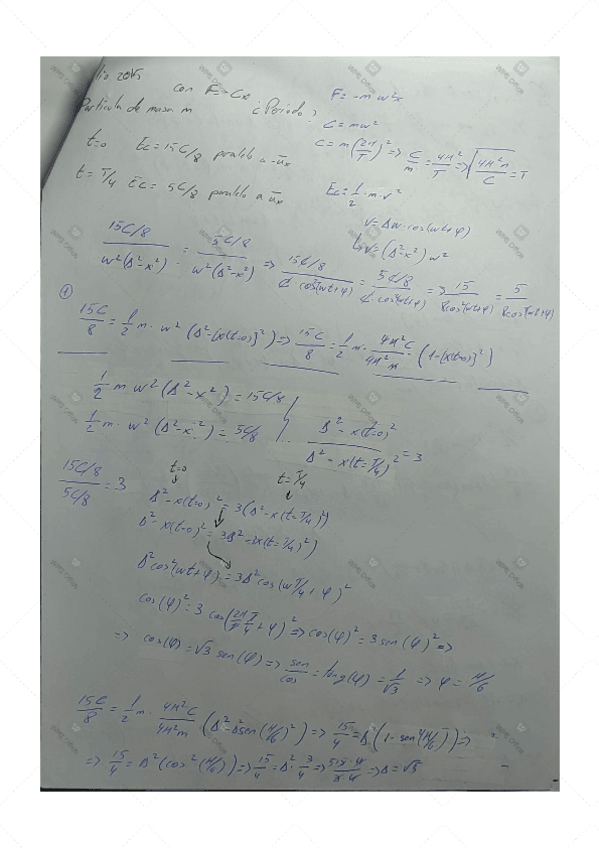 lio 2015
Partícula de masa m con F=-Cx ¿Periodo?
F = -mω²x
C = mω²
C = m(2π/T)² => C/m = 4π²/T => √(4π²m/C) = T
t=0 Ec = 15C/8 paralelo a -ūx
t = T/4 Ec = 5C/8 paralelo a ūx
Ec = 1/2 · m · v²
v = Aω · cos(ωt+φ)
v = (A²-x²)ω²
(15C/8)/(ω²(A²-x²)) = (5C/8)/(ω²(A²-x²)) => (15C/8)/(C · cos²(ωt+φ)) = (5C/8)/(C · cos²(ωt+φ)) => 15/(8cos²(ωt+φ)) = 5/(8cos²(ωt+φ))
① 15C/8 = 1/2 m · ω² (A²-[x(t=0)]²) => 15C/8 = 1/2 m · 4π²C/4π²m · (1-[x(t=0)]²)
1/2 m ω² (A²-x²) = 15C/8
1/2 m · ω² (A²-x²) = 5C/8
(A² - x(t=0)²)/(A² - x(t=T/4)²) = 3
(15C/8)/(5C/8) = 3
t=0 t=T/4
A² - x(t=0)² = 3(A² - x(t=T/4)²)
A² - x(t=0)² = 3A² - 3x(t=T/4)²)
A² cos²(ωt+φ) = 3A² cos(ωT/4 + φ)²
cos(φ)² = 3 cos(2π/T T/4 + φ)² => cos(φ)² = 3 sen(φ)² =>
=> cos(φ) = √3 sen(φ) => sen/cos = tang(φ) = 1/√3 => φ = π/6
15C/8 = 1/2 m · 4π²C/4π²m · (A² - A² sen(π/6)²) => 15/4 = A (1 - sen²(π/6)) =>
=> 15/4 = A² (cos²(π/6)) => 15/4 = A² · 3/4 => => A = √5